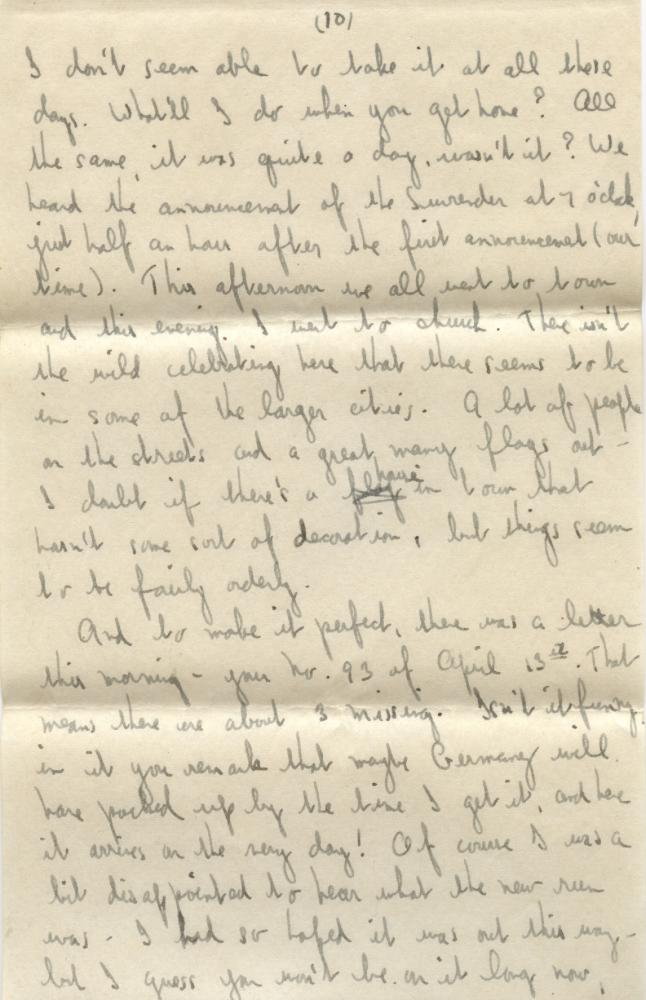 (10)
I don't seem able to take it at all these
days. What'll I do when you get home? All
the same, it was quite a day, wasn't it? We
heard the announcement of the Surrender at 7 o'clock,
just half an hour after the first announcement (our
time). This afternoon we all went to town
and this evening I went to church. There isn't
the wild celebrating here that there seems to be
in some of the larger cities. A lot of people
on the streets and a great many flags out -
I doubt if there's a house in town that
hasn't some sort of decoration, but things seem
to be fairly orderly.
And to make it perfect, there was a letter
this morning - your No. 93 of April 13th. That
means there are about 3 missing. Isn't it funny,
in it you remark that maybe Germany will
have packed up by the time I get it, and here
it arrives on the very day! Of course I was a
bit disappointed to hear what the new run
was - I had so hoped it was out this way -
but I guess you won't be on it long now,